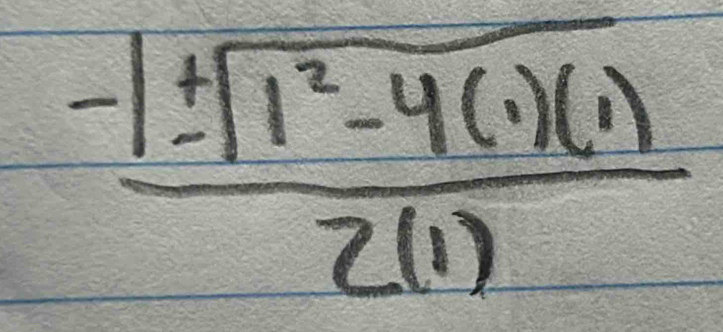 -1 ± √1² - 4(1)(1)
2(1)